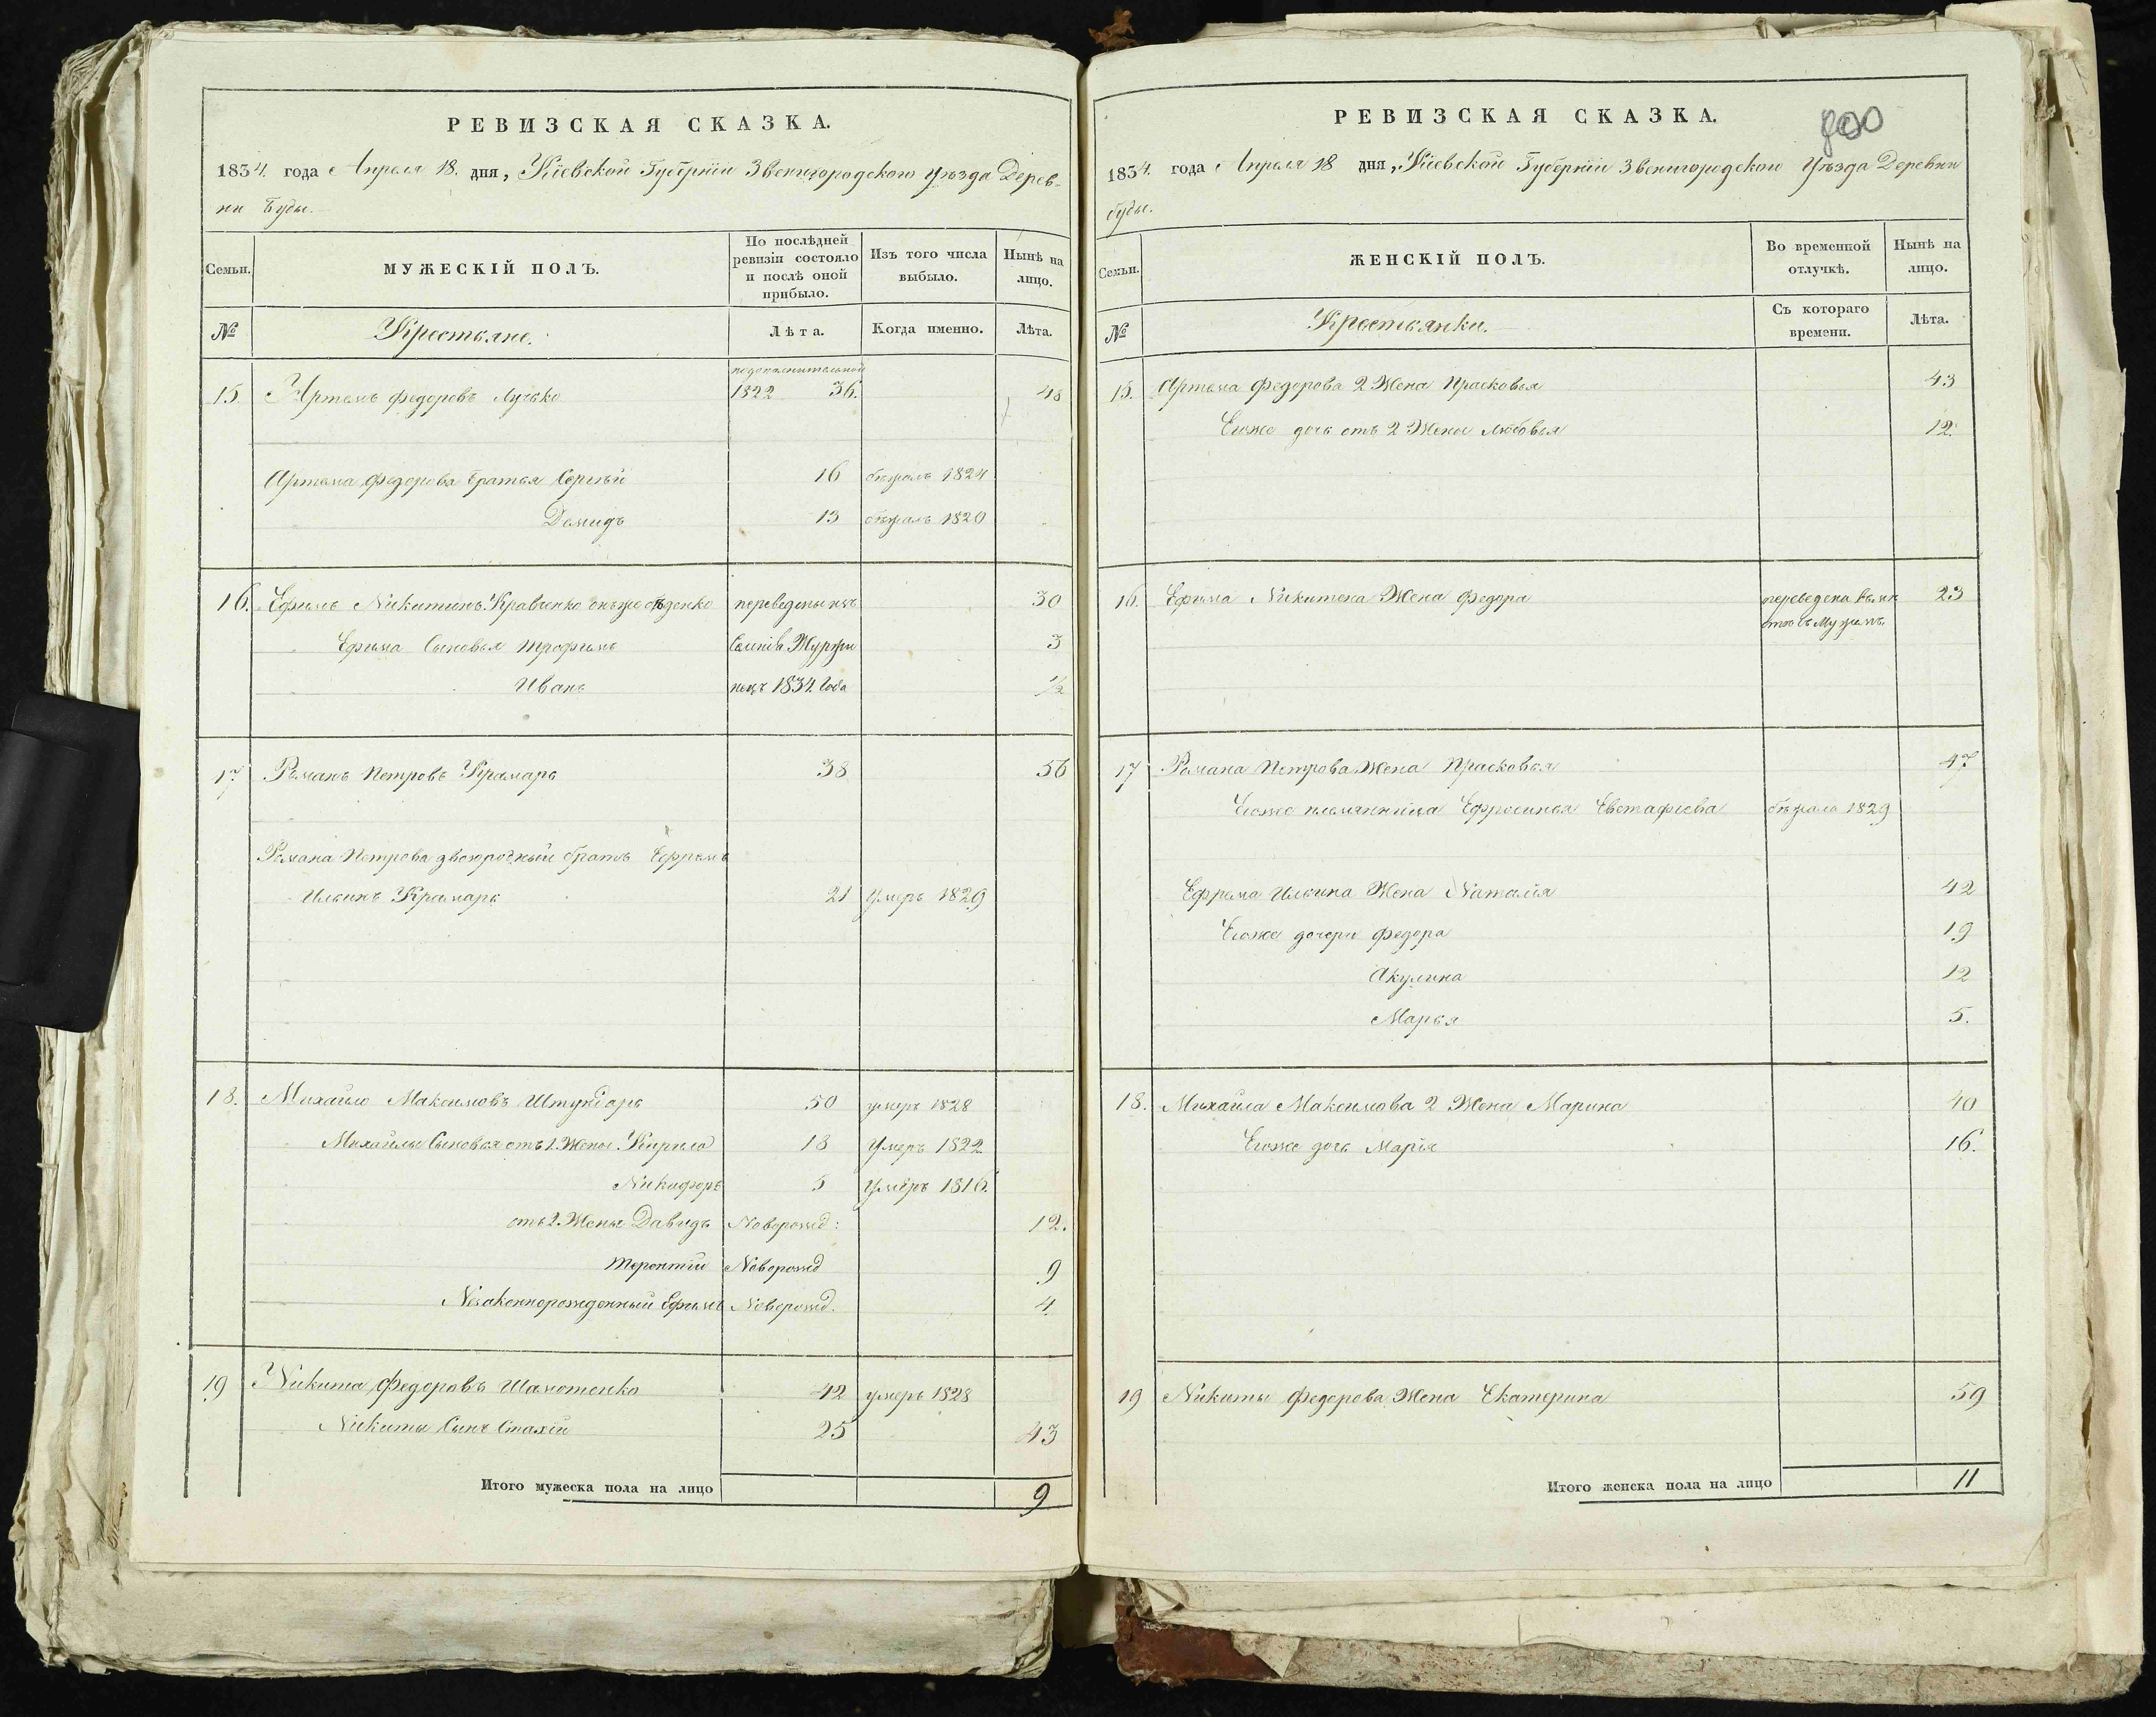 РЕВИЗСКАЯ СКАЗКА.
1834. года Апреля 18. дня, Кіевской Губерніи Звенигородского уѣзда Дерев-
ни Буды.
Семьи.
МУЖЕСКІЙ ПОЛЪ.
По послѣдней ревизіи состояло и послѣ оной прибыло.
Изъ того числа выбыло.
Нынѣ на лицо.
№
Крестьяне.
Лѣта.
Когда именно.
Лѣта.
подополнительной
15. Артемъ Федоровъ Лучько 1822 36. 48
Артема Федорова братья Сергѣй 16 бѣжалъ 1824
Демидъ 13 бѣжалъ 1820
16. Ефимъ Никитинъ Кравченко онъже переведены изъ 30
Ефима Сыновья Трофимъ 3
Иванъ 1834. Года 1/2
17 Романъ Петровъ Крамарь 38 56
Романа Петрова двоюродный братъ Ефремъ
Ильинъ Крамарь 21 Умеръ 1829
18. Михайло Максимовъ Штундарь 50 умеръ 1828
Михайлы Сыновья отъ 1. Жены Кирило 18 Умеръ 1822
Никифоръ 5 Умеръ 1816.
отъ 2. Жены Давидъ Новорожд: 12.
Терентій Новорожд 9
Незаконнорожденный Ефимъ Новорожд. 4.
19 Никита Федоровъ Шахотенко 42 умеръ 1828
Никиты Сынъ Стахій 25 43
Итого мужеска пола на лицо 9
800
РЕВИЗСКАЯ СКАЗКА.
1834. года Апреля 18 дня, Кіевской Губерніи Звенигородского Уѣзда Деревни
буды.
Семьи.
ЖЕНСКІЙ ПОЛЪ.
Во временной отлучкѣ.
Нынѣ на лицо.
№
Крестьянки.
Съ котораго времени.
Лѣта.
15. Артема Федорова 2 Жена Прасковья 43
Егоже дочь отъ 2 Жены Любовья 12.
16. Ефима Никитена Жена Федора переведена 23
съ Мужемъ
17 Романа Петрова Жена Прасковья 47
Егоже племянница Ефросинья Евстафіева бѣжала 1829
Ефрема Ильина Жена Наталія 42
Егоже дочери Федора 19
Акулина 12
Марья 5.
18. Михайла Максимова 2 Жена Марина 40
Егоже дочь Марія 16.
19 Никиты Федорова Жена Екатерина 59
Итого женска пола на лицо 11